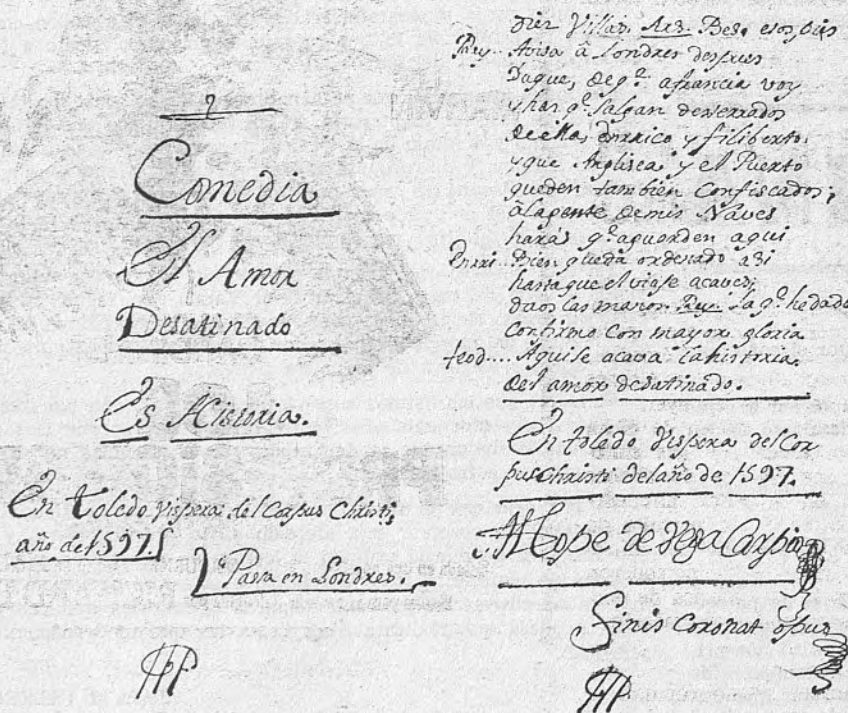 Comedia
El Amor
Desatinado
Es Historia.
En Toledo vispera del Corpus Christi,
año de 1597.
Passa en Londres.
diez Villas. pies
Rey.. Avisa â Londres despues
Duque, de q.e a francia voy
y haz q.e salgan desterrados
de ella, Enrrico y filiberto.
y que y el Puerto
queden tambien confiscados;
â la gente de mis Naves
haras q.e aguarden aqui
Enrri.. Bien queda ordenado asi
hasta que el viage acaves;
daos las manos. Rey. La q.e he dado
Confirmo Con mayor gloria
teod.... Aqui se acava la historia.
del amor desatinado.
En toledo Vispera del Cor
pus Christi del año de 1597.
Lope de Vega Carpio
Finis Coronat opus